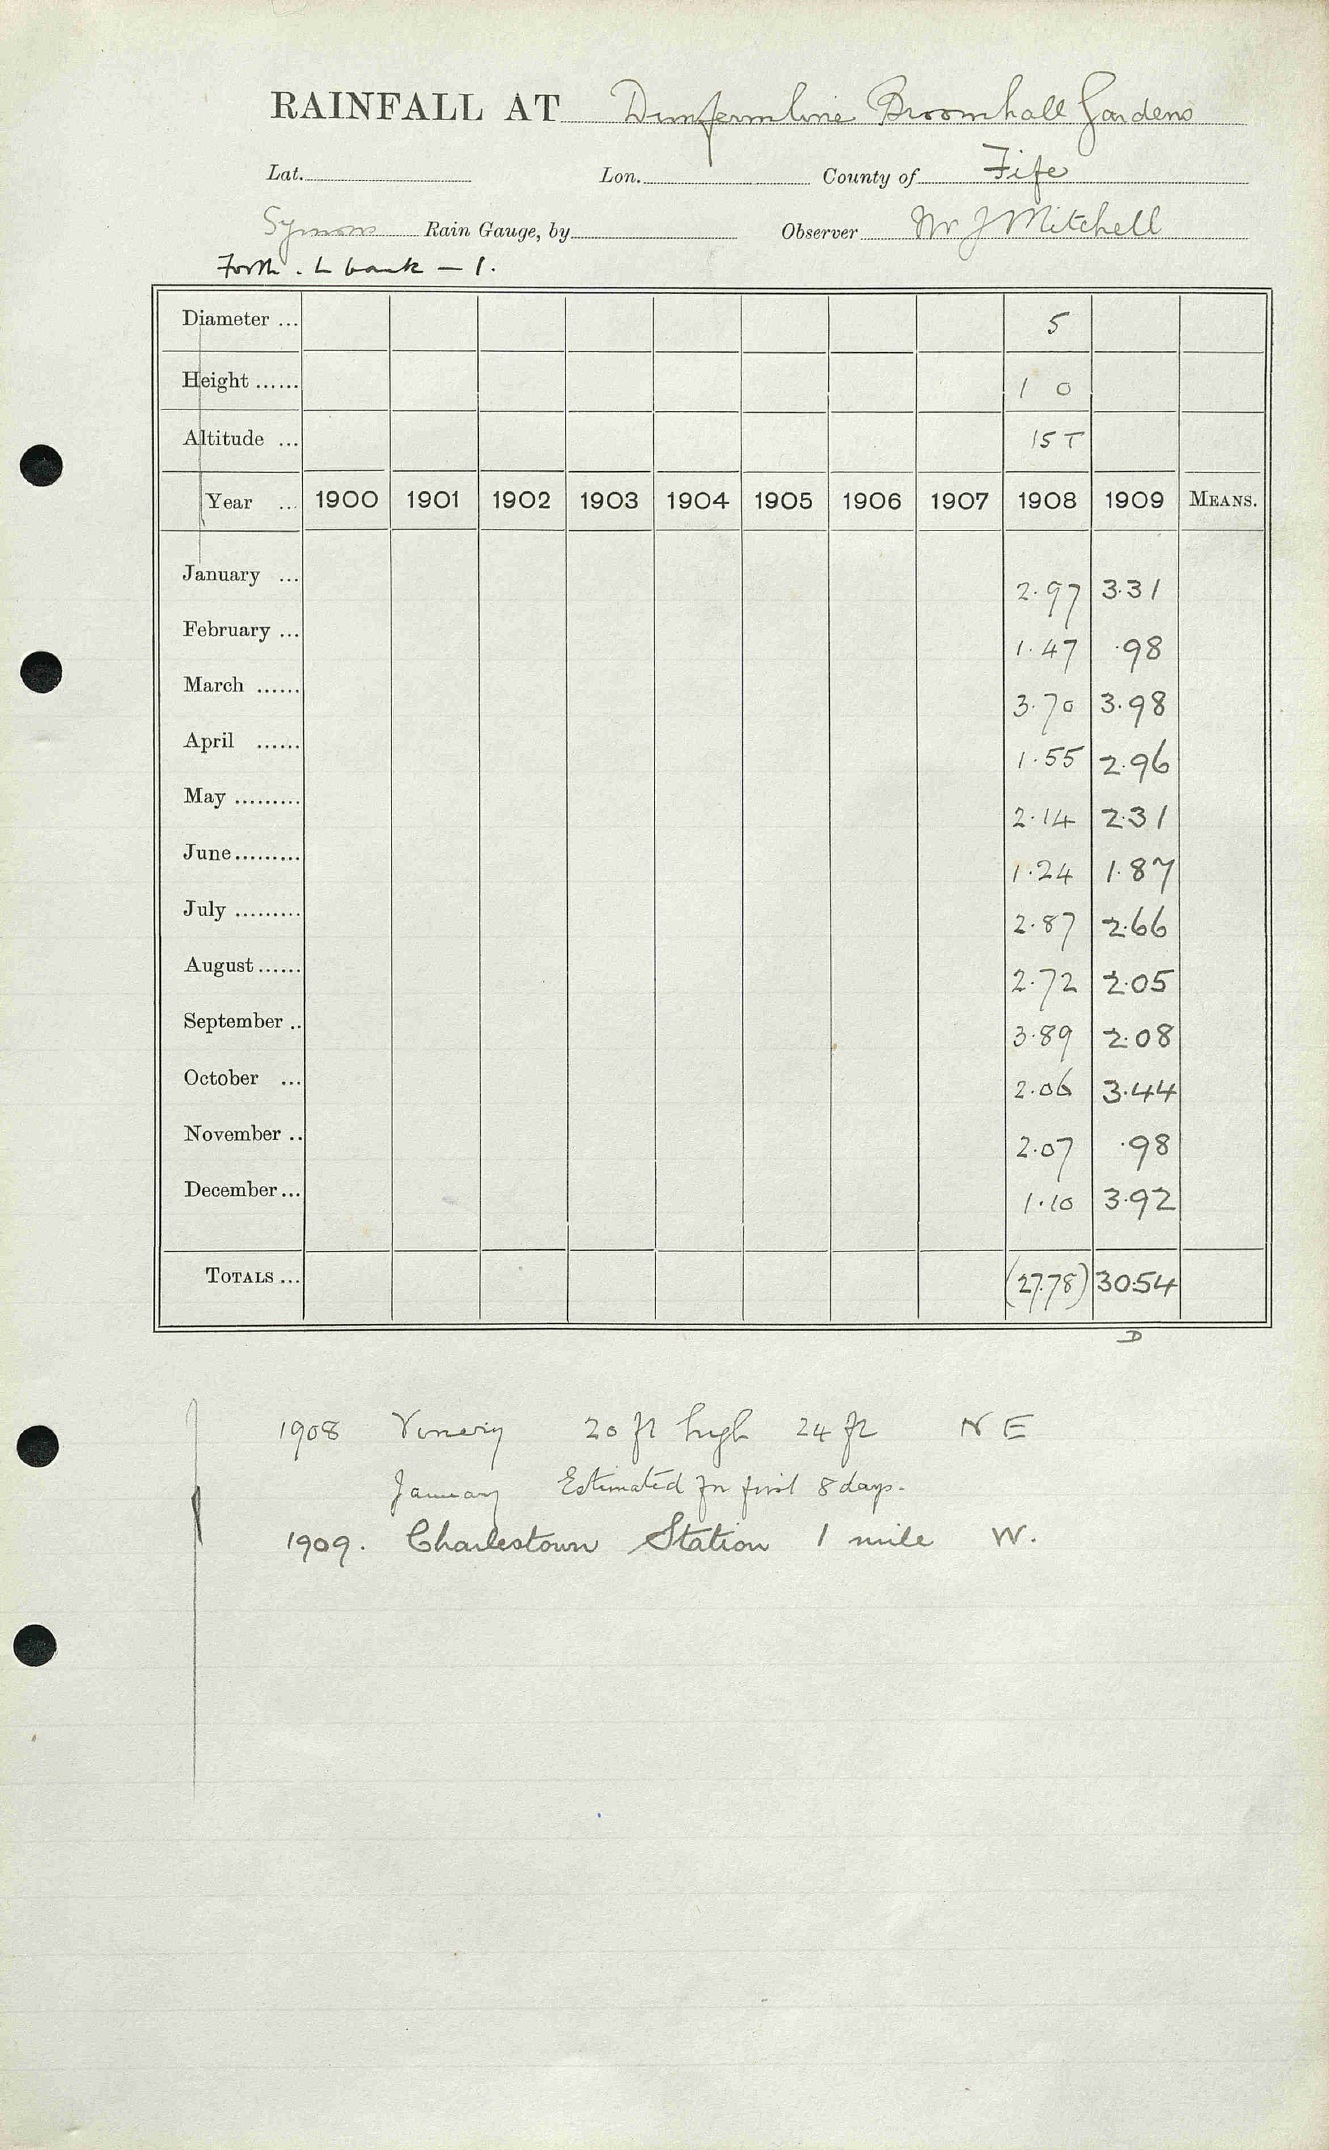 RAINFALL AT Dunfermline Broomhall Gardens
Lat. Lon. County of Fife
Symons Rain Gauge, by Observer Mr J Mitchell
Forth . L bank — 1.
Diameter ... 5
Height ...... 1 0
Altitude ... 15 T
Year ... 1900 1901 1902 1903 1904 1905 1906 1907 1908 1909 MEANS.
January ... 2.97 3.31
February ... 1.47 .98
March ...... 3.70 3.98
April ...... 1.55 2.96
May ......... 2.14 2.31
June ......... 1.24 1.87
July ......... 2.87 2.66
August ...... 2.72 2.05
September .. 3.89 2.08
October ... 2.06 3.44
November .. 2.07 .98
December ... 1.10 3.92
TOTALS ... (27.78) 30.54
D
1908 Vinery 20 ft high 24 ft N E
January Estimated for first 8 days.
1909. Charlestown Station 1 mile W.